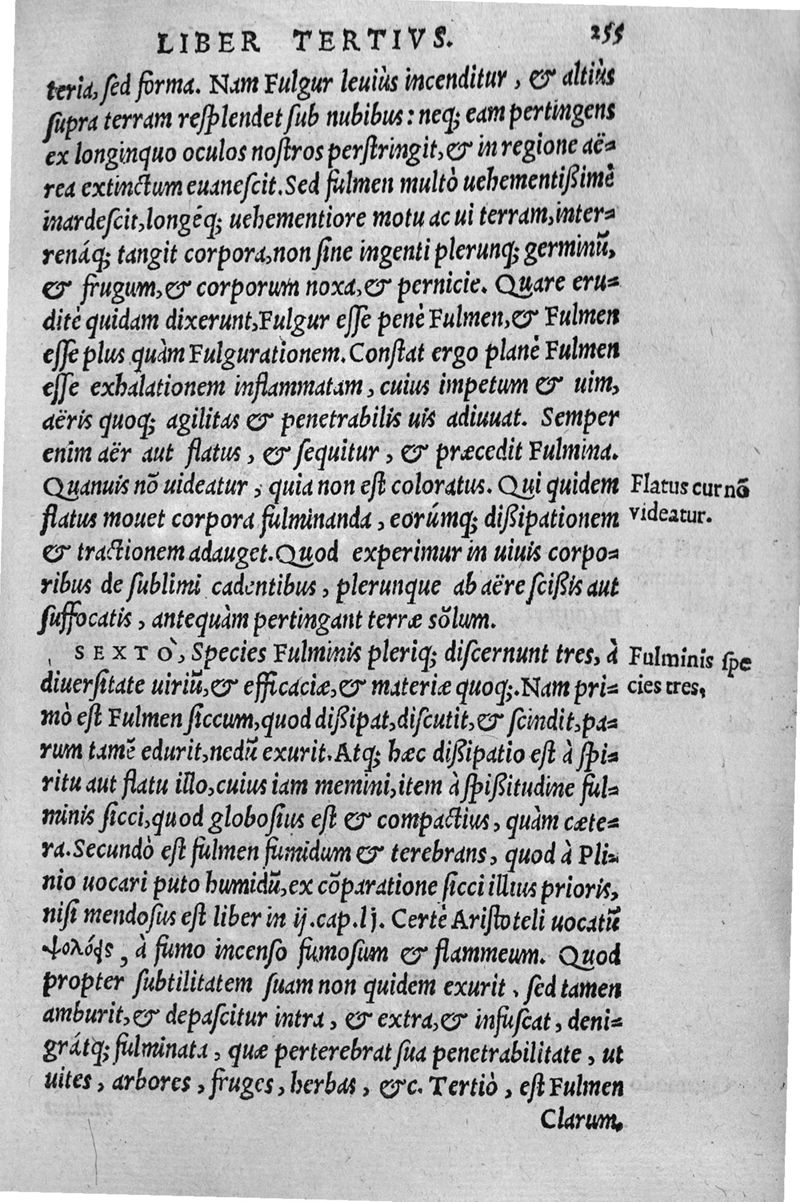 LIBER TERTIVS. 255
teria, sed forma. Nam Fulgur leuiùs incenditur, & altiùs
supra terram resplendet sub nubibus: neq; eam pertingens
ex longinquo oculos nostros perstringit, & in regione aë-
rea extinctum euanescit. Sed fulmen multò uehementißimè
inardescit, longéq; uehementiore motu ac ui terram, inter-
renáq; tangit corpora, non sine ingenti plerunq; germinū,
& frugum, & corporum noxa, & pernicie. Quare eru-
ditè quidam dixerunt, Fulgur esse penè Fulmen, & Fulmen
esse plus quàm Fulgurationem. Constat ergo planè Fulmen
esse exhalationem inflammatam, cuius impetum & uim,
aëris quoq; agilitas & penetrabilis uis adiuuat. Semper
enim aër aut flatus, & sequitur, & præcedit Fulmina.
Quanuis nō uideatur, quia non est coloratus. Qui quidem
Flatus cur nō
flatus mouet corpora fulminanda, eorúmq; dißipationem
videatur.
& tractionem adauget. Quod experimur in uiuis corpo-
ribus de sublimi cadentibus, plerunque ab aëre scißis aut
suffocatis, antequàm pertingant terræ sōlum.
SEXTÒ, Species Fulminis pleriq; discernunt tres, à
Fulminis spe
diuersitate uiriū, & efficaciæ, & materiæ quoq;. Nam pri-
cies tres,
mò est Fulmen siccum, quod dißipat, discutit, & scindit, pa-
rum tamē edurit, nedū exurit. Atq; hæc dißipatio est à spi-
ritu aut flatu illo, cuius iam memini, item à spißitudine ful-
minis sicci, quod globosius est & compactius, quàm cæte-
ra. Secundò est fulmen fumidum & terebrans, quod à Pli-
nio uocari puto humidū, ex cōparatione sicci illius prioris,
nisi mendosus est liber in ij. cap. lj. Certè Aristoteli uocatū
ψολόεις, à fumo incenso fumosum & flammeum. Quod
propter subtilitatem suam non quidem exurit, sed tamen
amburit, & depascitur intra, & extra, & infuscat, deni-
grátq; fulminata, quæ perterebrat sua penetrabilitate, ut
uites, arbores, fruges, herbas, &c. Tertiò, est Fulmen
Clarum,